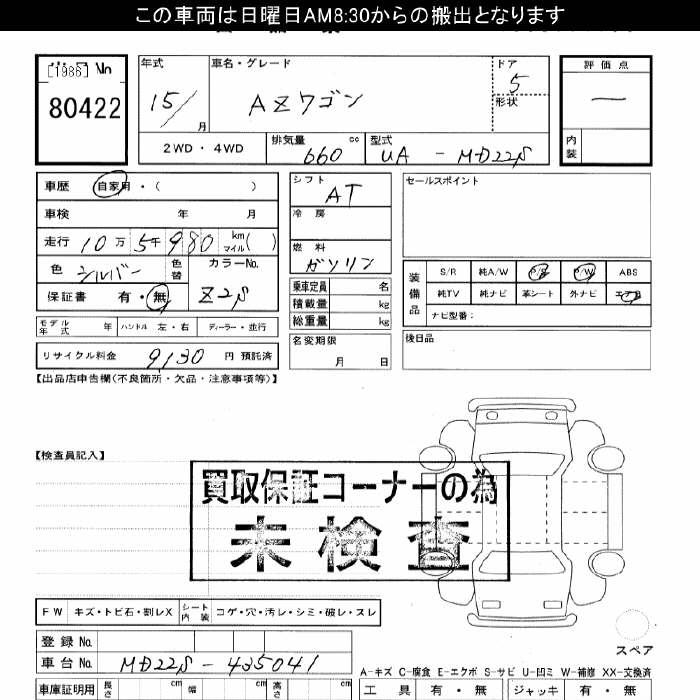 この車両は日曜日AM8:30からの搬出となります
[1986] No
80422
年式 車名・グレード ドア 評価点
15/月 AZワゴン 5 —
形状
2WD・4WD 排気量 660 cc 型式 UA - MD22S 内装
車歴 自家用・( ) シフト AT セールスポイント
車検 年 月 冷房
走行 10万5千980 km マイル( ) 燃料 ガソリン
色 シルバー 色替 カラーNo. Z2S
保証書 有・無
乗車定員 名
積載量 kg
総重量 kg
装備品 S/R 純A/W P/S P/W ABS
純TV 純ナビ 革シート 外ナビ エアB
ナビ型番:
モデル年式 年 ハンドル 左・右 ディーラー・並行
名変期限 月 日
後日品
リサイクル料金 9130 円 預託済
【出品店申告欄(不良箇所・欠品・注意事項等)】
【検査員記入】
買取保証コーナーの為
未検査
FW キズ・トビ石・割レX シート内装 コゲ・穴・汚レ・シミ・破レ・スレ
スペア
登録No.
車台No. MD22S-435041
A-キズ C-腐食 E-エクボ S-サビ U-凹ミ W-補修 XX-交換済
車庫証明用 長さ cm 幅 cm 高さ cm 工具 有・無 ジャッキ 有・無